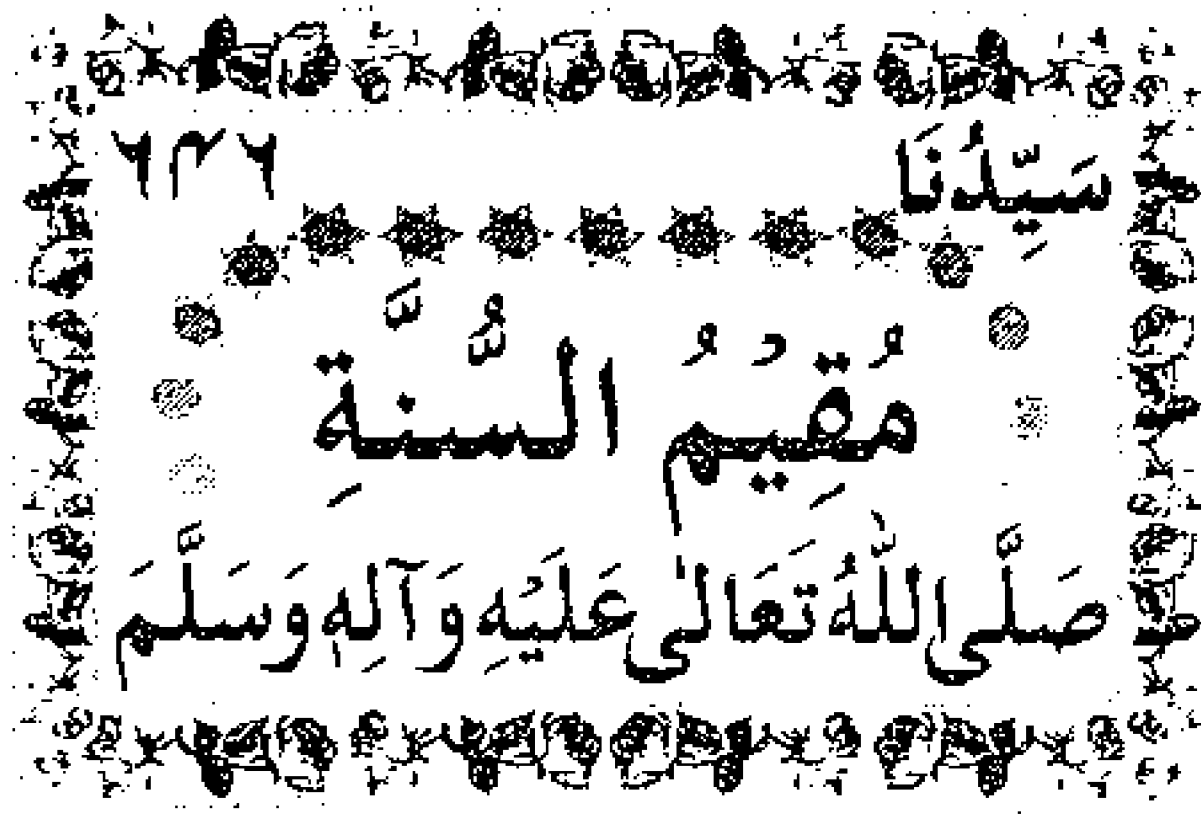 سَيِّدُنَا ٦٣٦
مُقِيْمُ السُّنَّةِ
صَلَّى اللّٰهُ تَعَالٰى عَلَيْهِ وَآلِهٖ وَسَلَّمَ